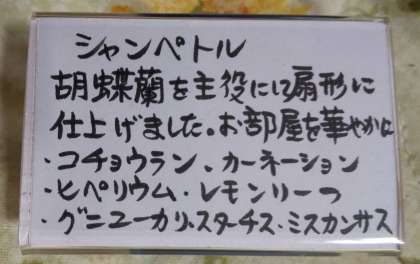 シャンペトル
胡蝶蘭を主役にして扇形に
仕上げました。お部屋を華やかに
・コチョウラン、カーネーション
・ヒペリウム・レモンリーフ
・グニユーカリ・スターチス・ミスカンサス